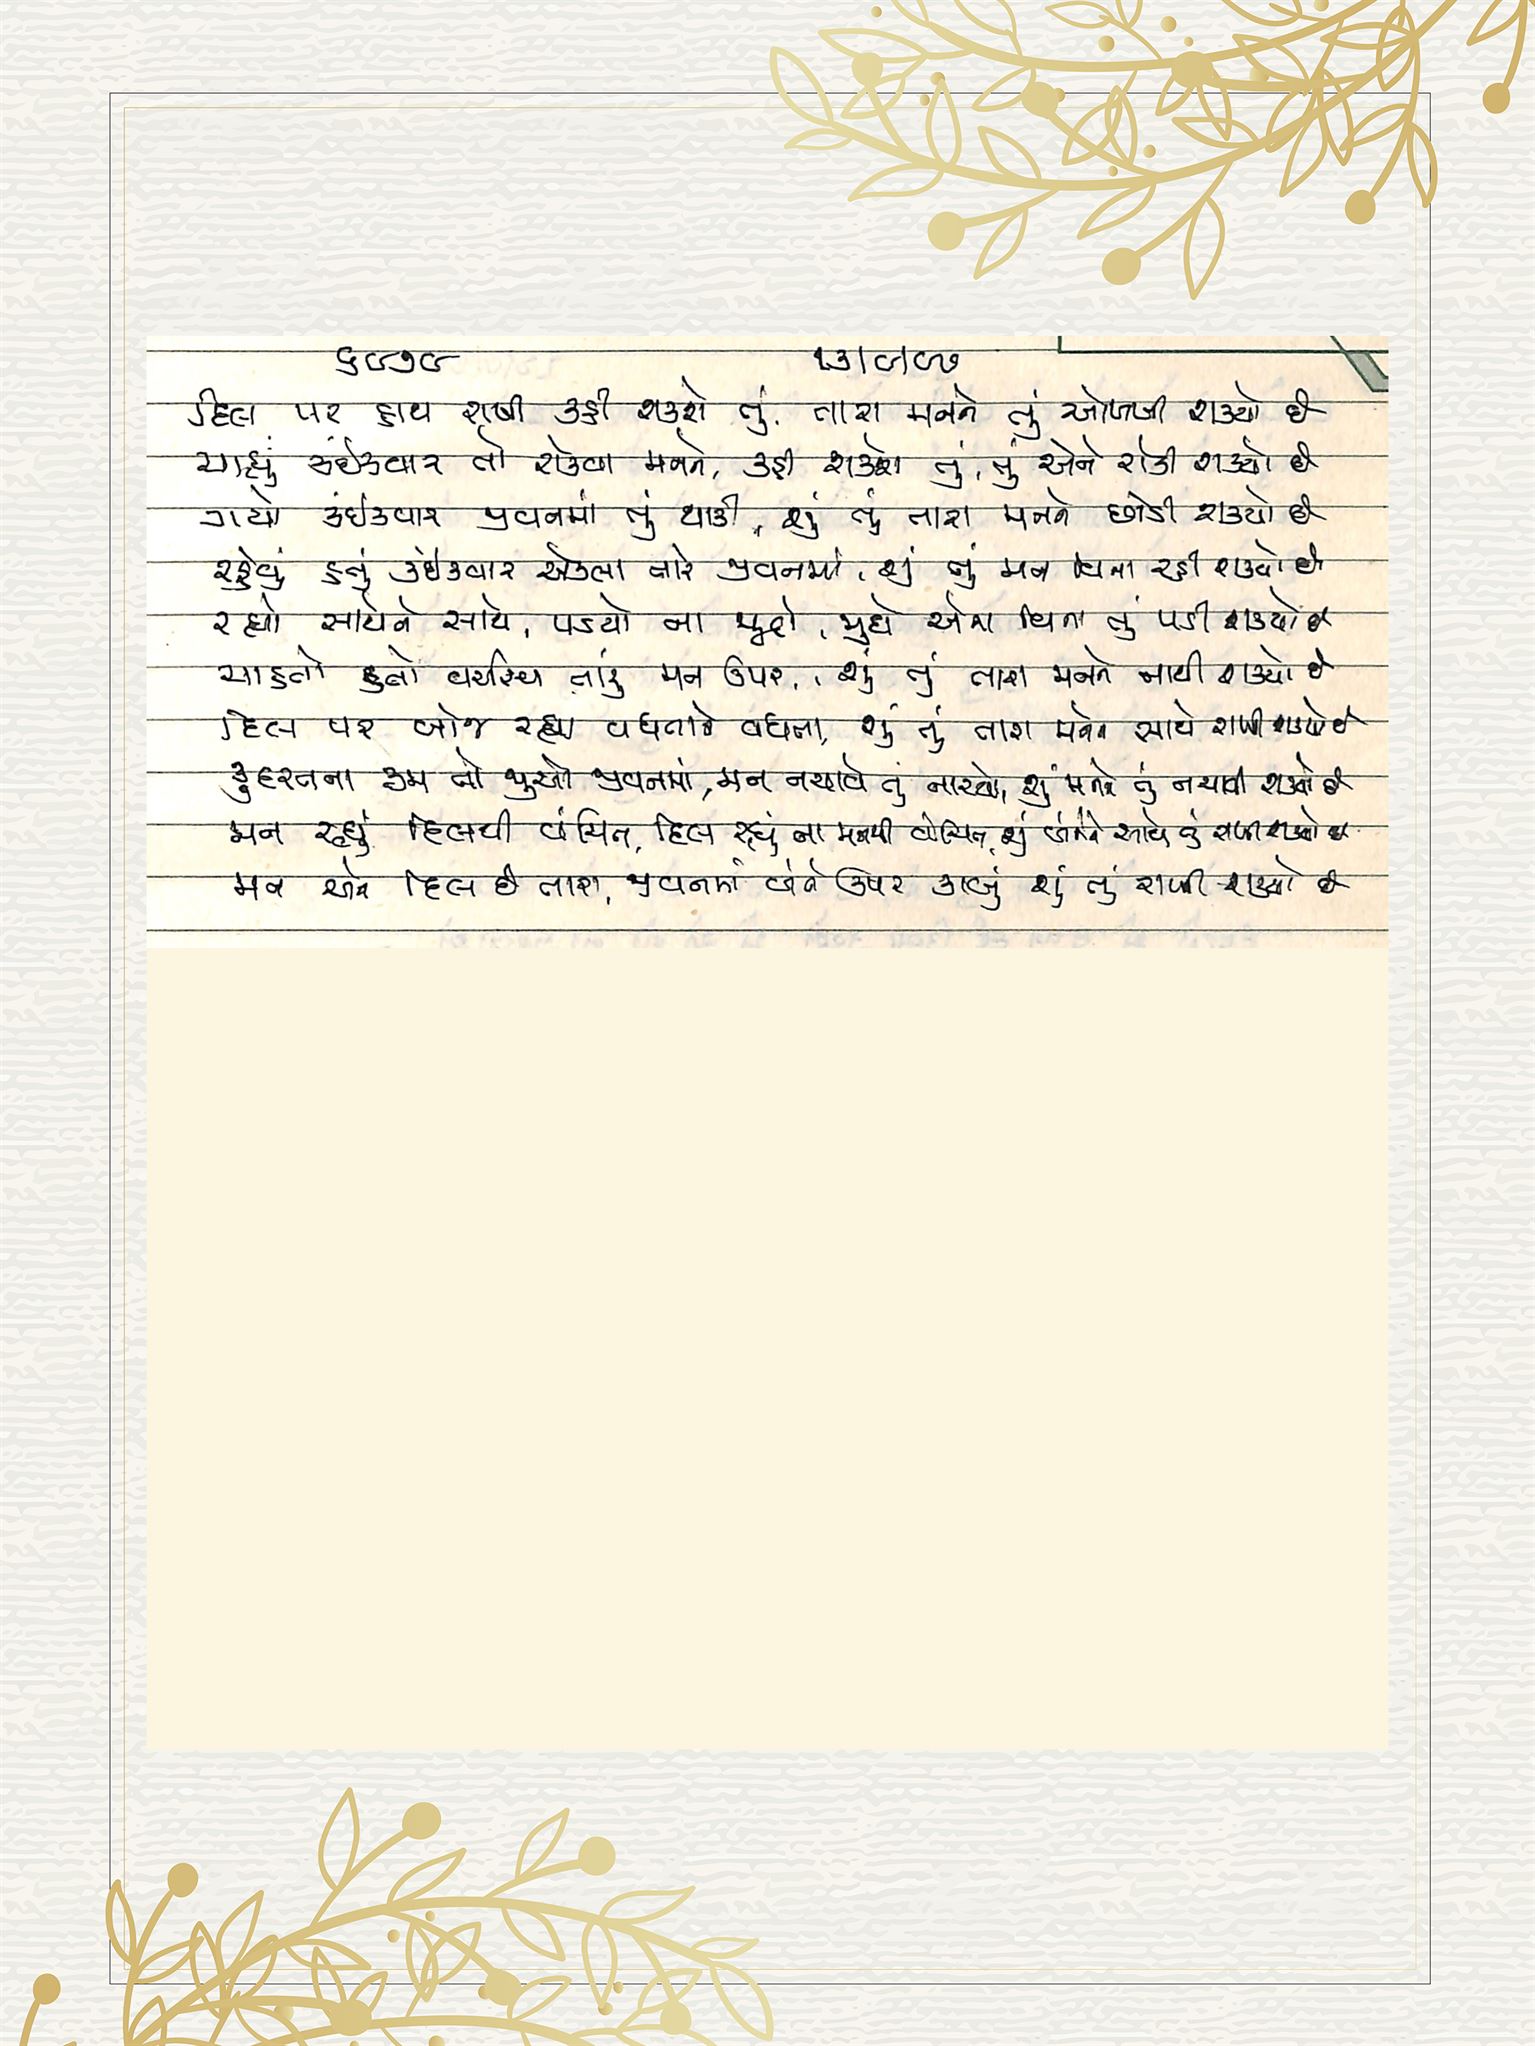 ૬૯૭૯ ૧૩/૯/૯૭
દિલ પર હાથ રાખી કહી શકશે તું, તારા મનને તું ઓળખી શક્યો છે
ચાહ્યું કંઈકવાર તો રોકવા મનને, કહી શકશે તું, તું એને રોકી શક્યો છે
ગયો કંઈકવાર જીવનમાં તું થાકી, શું તું તારા મનને છોડી શક્યો છે
રહેવું હતું કંઈકવાર એકલા તારે જીવનમાં, શું તું મન વિના રહી શક્યો છે
રહ્યો સાથેને સાથે, પડયો ના જુદો, જુદો એના વિના તું પડી શક્યો છે
ચાહતો હતો વર્ચસ્વ તારું મન ઉપર, શું તું તારા મનને નાથી શક્યો છે
દિલ પર બોજ રહ્યા વધતાને વધતા, શું તું તારા મનને સાથે રાખી શક્યો છે
કુદરતના ક્રમ તો જુઓ જીવનમાં, મન નચાવે તું નાચ્યો, શું મનને તું નચાવી શક્યો છે
મન રહ્યું દિલથી વંચિત, દિલ રહ્યું ના મનથી વંચિત, શું બંનેને સાથે તું રાખી શક્યો છે
મન અને દિલ છે તારા, જીવનમાં બંને ઉપર કાબું શું તું રાખી શક્યો છે